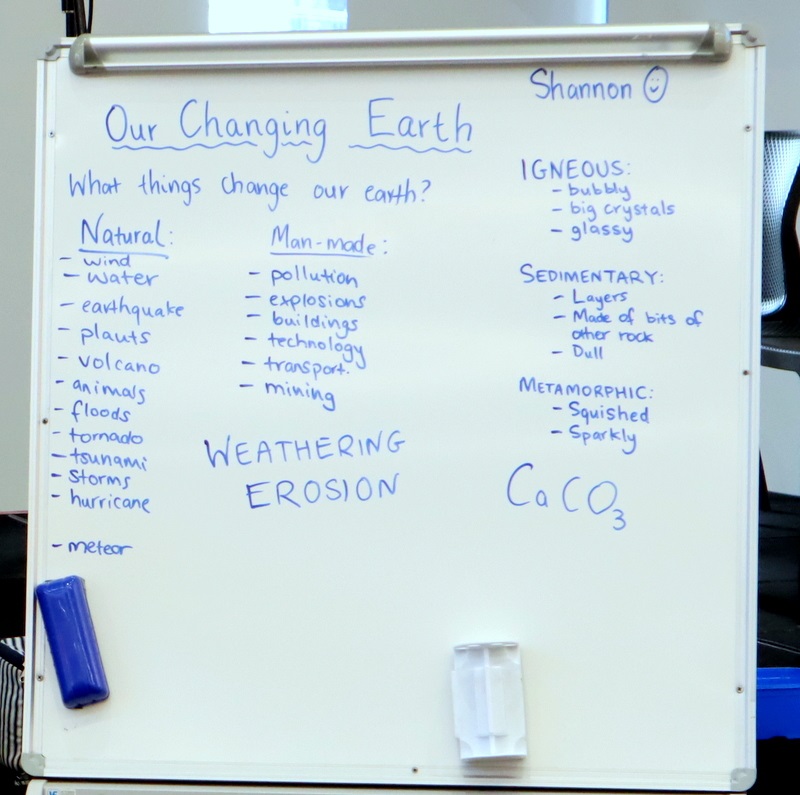 Shannon ☺
Our Changing Earth
What things change our earth?
Natural:
- wind
- water
- earthquake
- plants
- volcano
- animals
- floods
- tornado
- tsunami
- storms
- hurricane
- meteor
Man-made:
- pollution
- explosions
- buildings
- technology
- transport.
- mining
WEATHERING
EROSION
IGNEOUS:
- bubbly
- big crystals
- glassy
SEDIMENTARY:
- Layers
- Made of bits of
other rock
- Dull
METAMORPHIC:
- Squished
- Sparkly
CaCO3